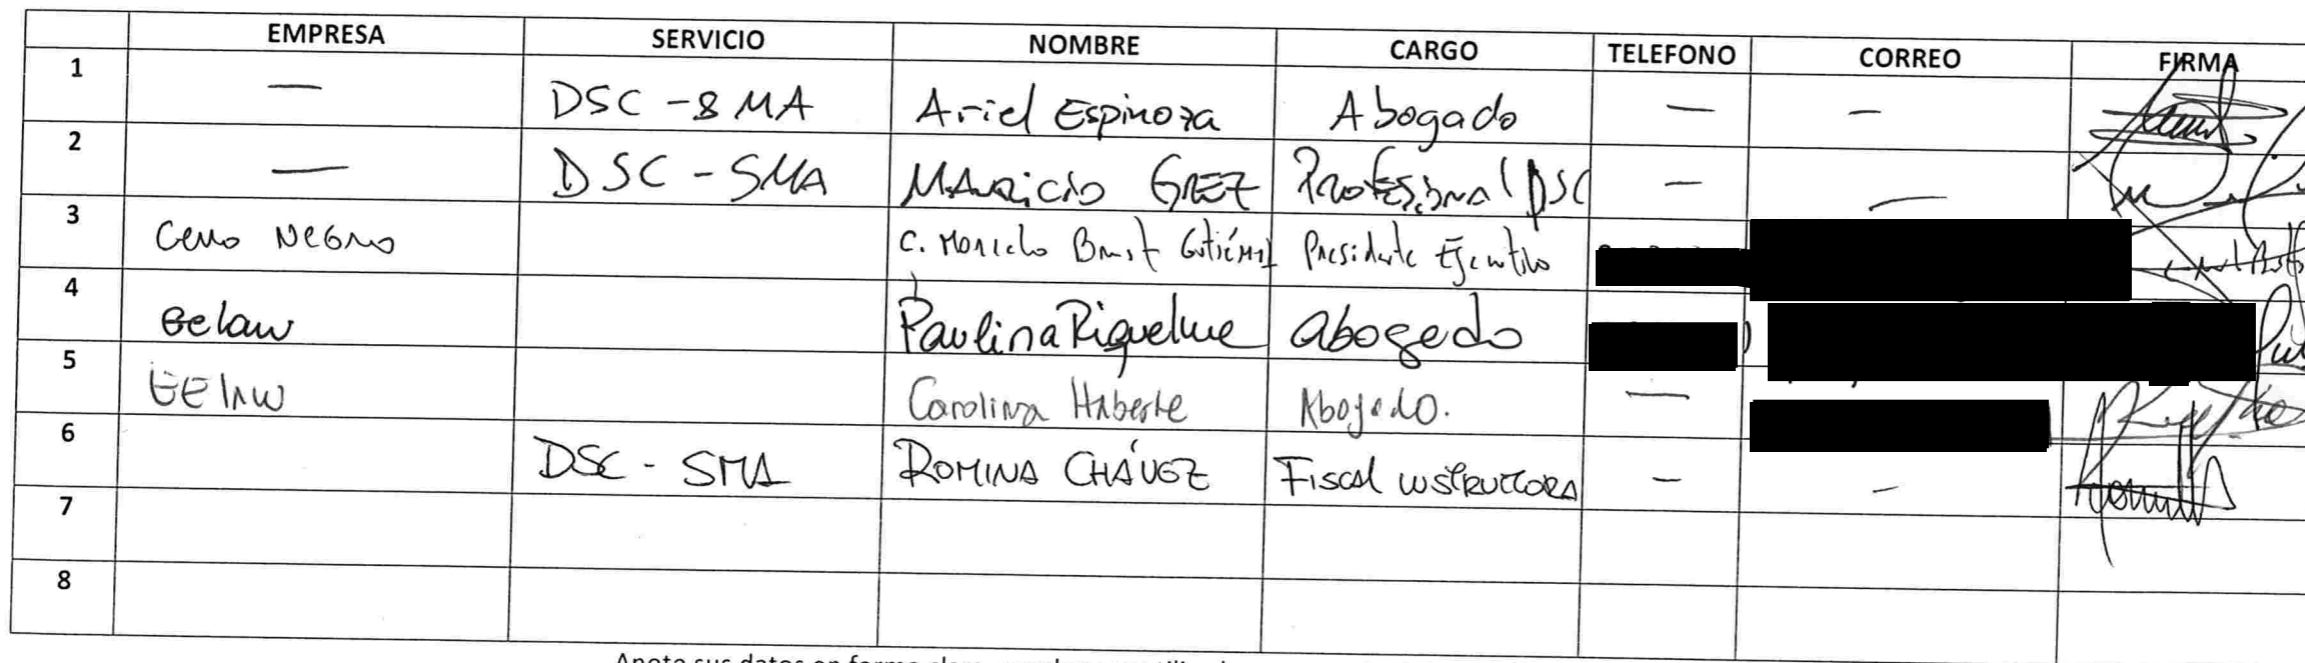 EMPRESA SERVICIO NOMBRE CARGO TELEFONO CORREO FIRMA
1 — DSC - SMA Ariel Espinoza Abogado — —
2 — DSC - SMA Mauricio Grez Profesional DSC — —
3 Cerro Negro C. Marcelo Gutiérrez Presidente Ejecutivo
4 eelaw Paulina Riquelme abogado
5 EELAW Carolina Abogado. —
6 DSC - SMA ROMINA CHÁVEZ FISCAL INSTRUCTORA - -
7
8